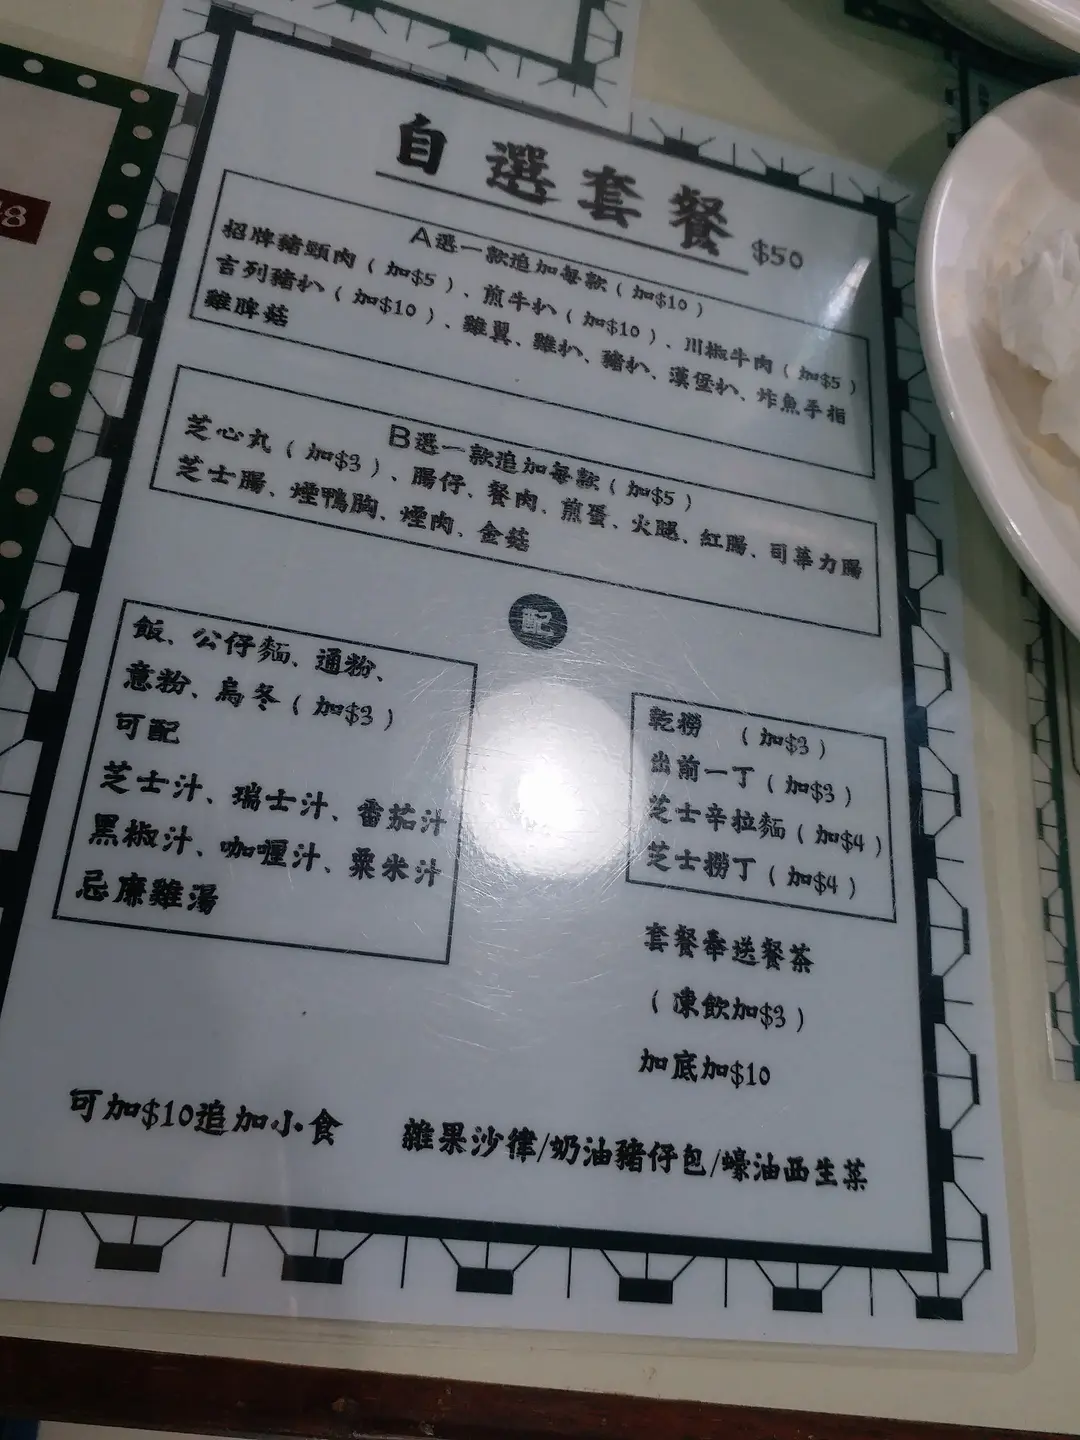 自選套餐 $50
A選一款追加每款(加$10)
招牌豬頸肉(加$5)、煎牛扒(加$10)、川椒牛肉(加$5)
吉列豬扒(加$10)、雞翼、雞扒、豬扒、漢堡扒、炸魚手指
雞脾菇
B選一款追加每款(加$5)
芝心丸(加$3)、腸仔、餐肉、煎蛋、火腿、紅腸、司華力腸
芝士腸、煙鴨胸、煙肉、金菇
配
飯、公仔麵、通粉、
意粉、烏冬(加$3)
可配
芝士汁、瑞士汁、番茄汁
黑椒汁、咖喱汁、粟米汁
忌廉雞湯
乾撈 (加$3)
出前一丁(加$3)
芝士辛拉麵(加$4)
芝士撈丁(加$4)
套餐奉送餐茶
(凍飲加$3)
加底加$10
可加$10追加小食 雜果沙律/奶油豬仔包/蠔油西生菜